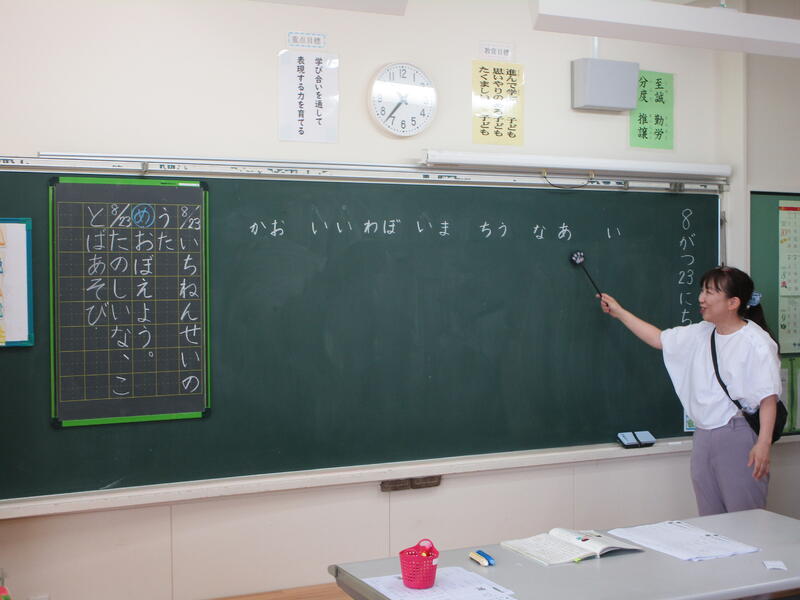 重点目標
学び合いを通して
表現する力を育てる
教育目標
進んで学ぶ 子ども
思いやりのある子ども
たくましい 子ども
至誠 勤労
分度 推譲
8がつ23にち
かお いい わぼ いま ちう なあ い
8/23 いちねんせいの
うた
め おぼえよう。
8/23 たのしいな、こ
とばあそび